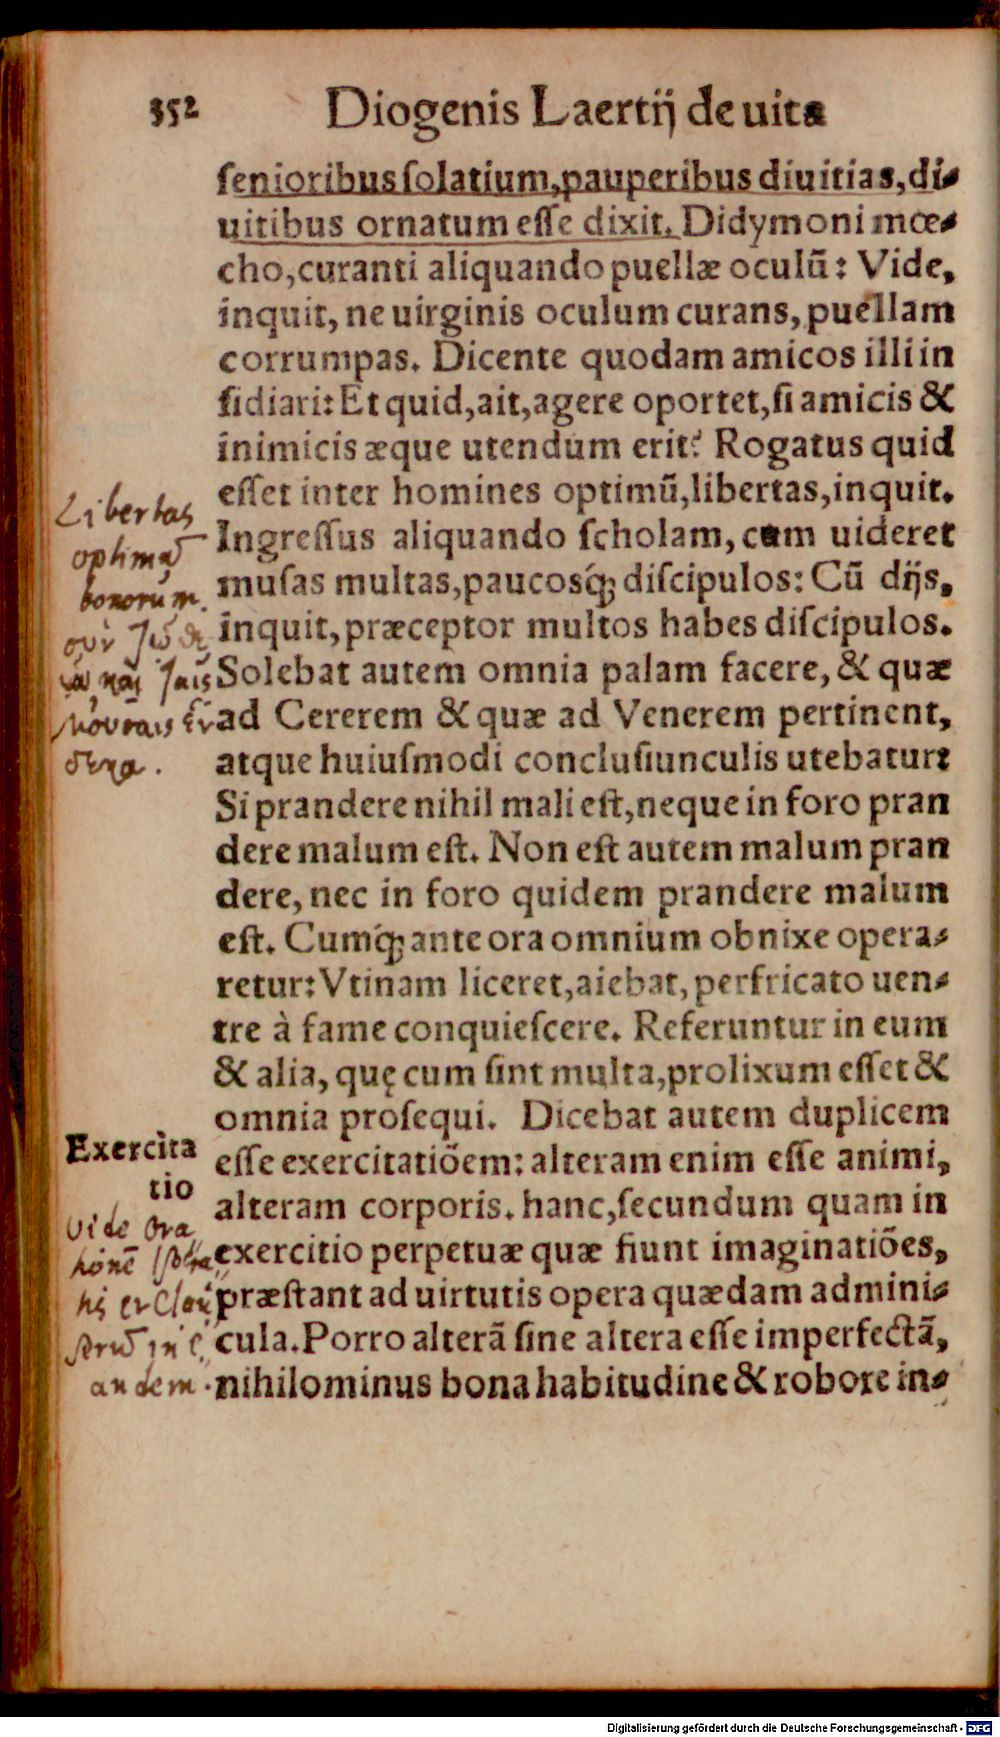 352 Diogenis Laertij de uita
ſenioribus ſolatium, pauperibus diuitias, di-
uitibus ornatum eſſe dixit. Didymoni mœ-
cho, curanti aliquando puellæ oculũ: Vide,
inquit, ne uirginis oculum curans, puellam
corrumpas. Dicente quodam amicos illi in
ſidiari: Et quid, ait, agere oportet, ſi amicis &
inimicis æque utendum erit? Rogatus quid
eſſet inter homines optimũ, libertas, inquit.
Ingreſſus aliquando ſcholam, cum uideret
muſas multas, paucosq́; diſcipulos: Cũ dijs,
inquit, præceptor multos habes diſcipulos.
Solebat autem omnia palam facere, & quæ
ad Cererem & quæ ad Venerem pertinent,
atque huiuſmodi concluſiunculis utebatur:
Si prandere nihil mali eſt, neque in foro pran
dere malum eſt. Non eſt autem malum pran
dere, nec in foro quidem prandere malum
eſt. Cumq́; ante ora omnium obnixe opera-
retur: Vtinam liceret, aiebat, perfricato uen-
tre à fame conquieſcere. Referuntur in eum
& alia, quę cum ſint multa, prolixum eſſet &
omnia proſequi. Dicebat autem duplicem
eſſe exercitatiõem: alteram enim eſſe animi,
alteram corporis. hanc, ſecundum quam in
exercitio perpetuæ quæ fiunt imaginatiões,
præſtant ad uirtutis opera quædam admini-
cula. Porro alterã ſine altera eſſe imperfectã,
nihilominus bona habitudine & robore in-
Libertas
optimũ
bonorum.
Exercita
tio
Vide Ora
andem.
Digitalisierung gefördert durch die Deutsche Forschungsgemeinschaft - DFG